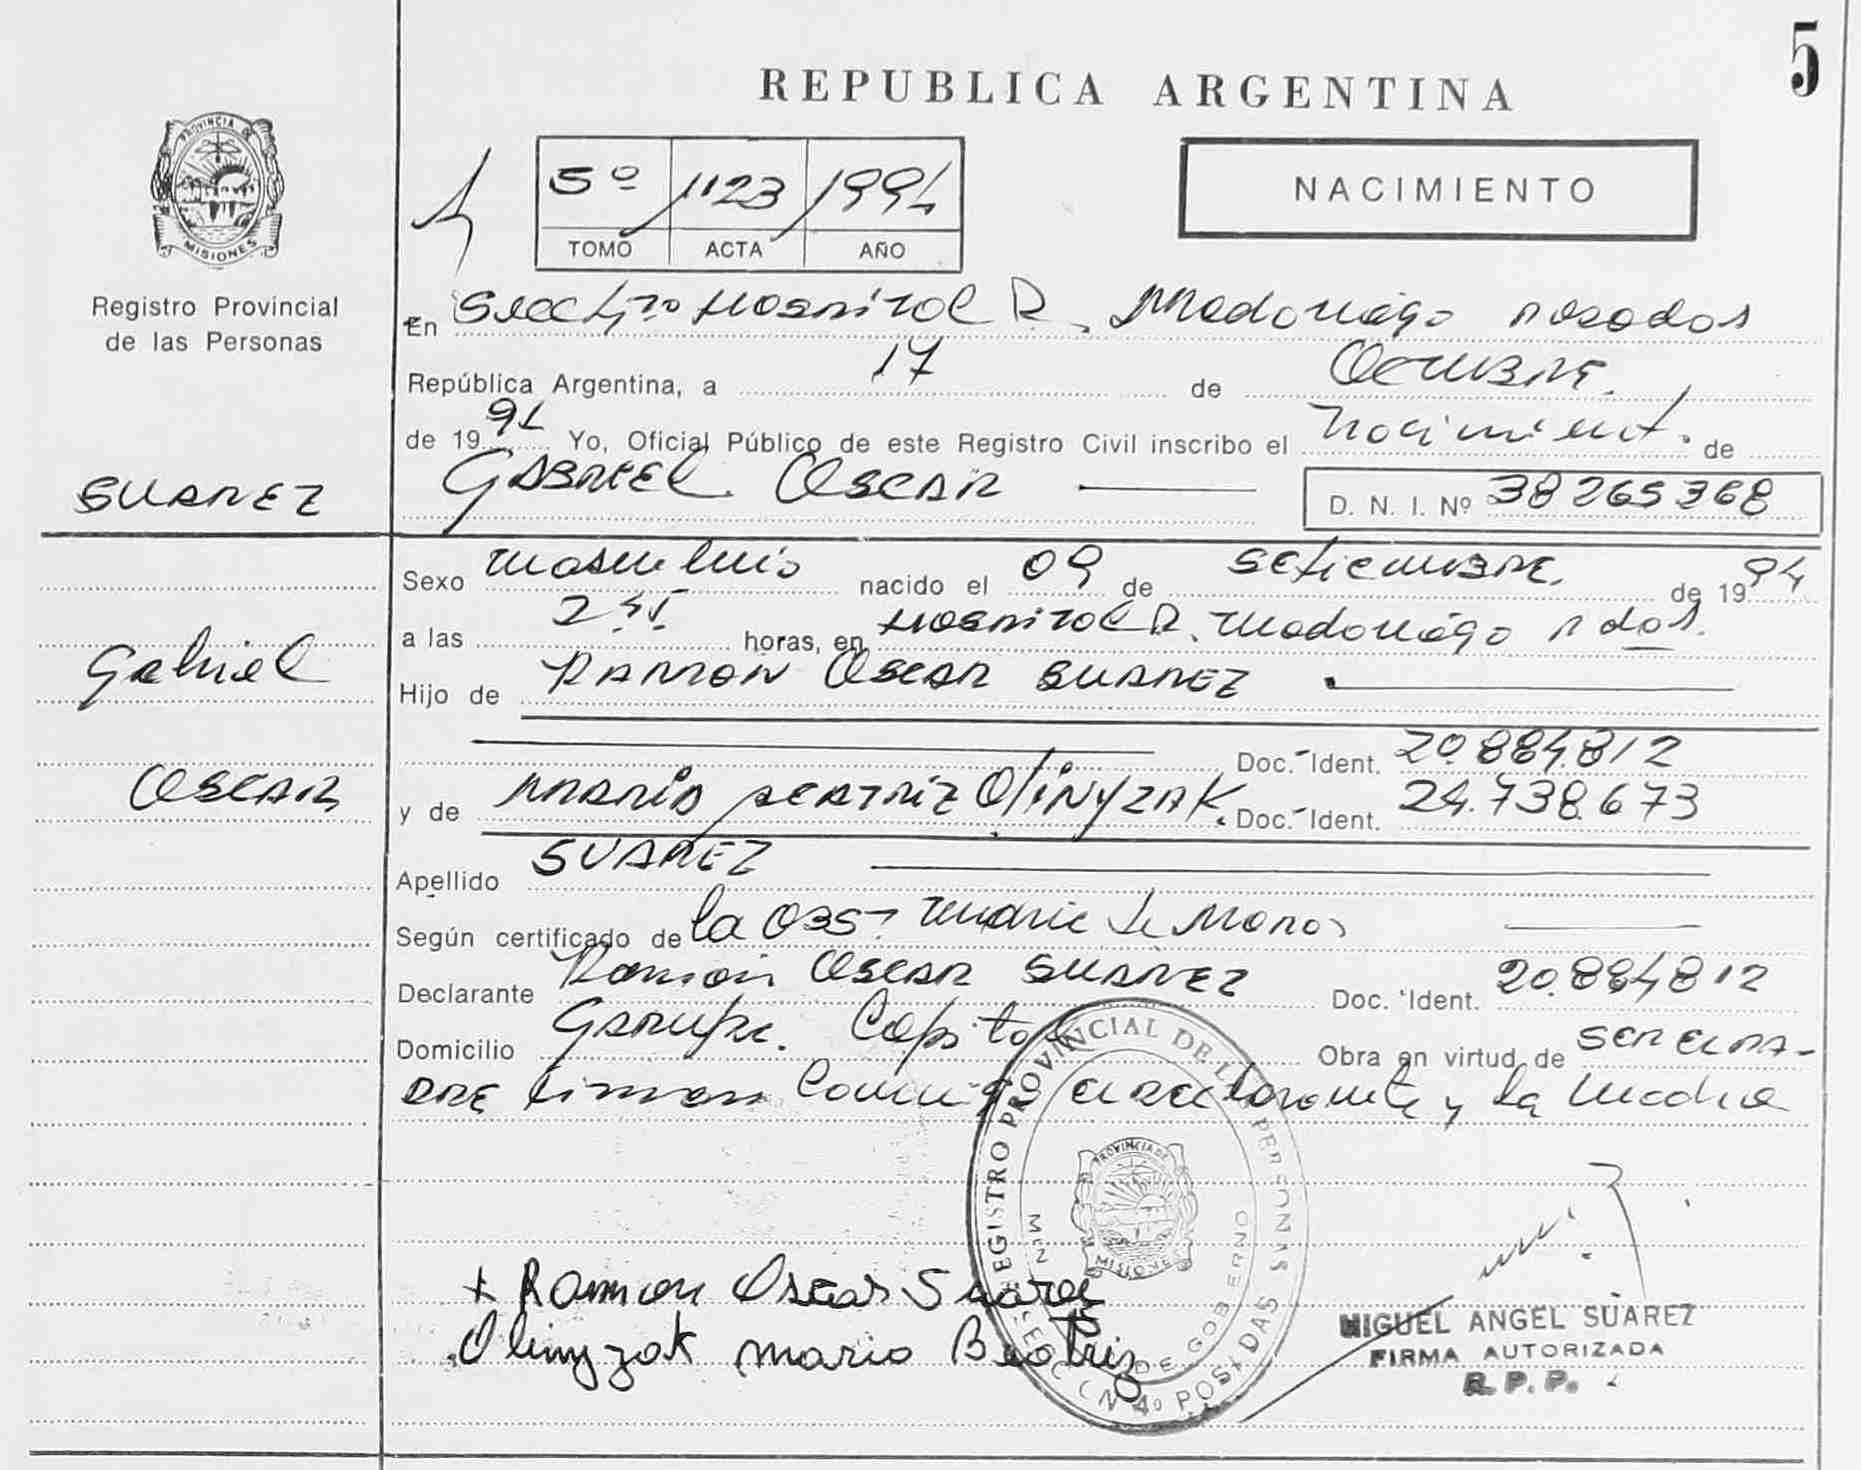 5
REPUBLICA ARGENTINA
PROVINCIA DE
MISIONES
Registro Provincial
de las Personas
5º 1123 1994
TOMO ACTA AÑO
NACIMIENTO
En Secc 4ª Hospital R. Madariaga Posadas
República Argentina, a 17 de Octubre.
de 1994 Yo, Oficial Público de este Registro Civil inscribo el Nacimient. de
SUAREZ
GABRIEL OSCAR D. N. I. Nº 38265368
Sexo Masculino nacido el 09 de Setiembre. de 1994
a las 2 horas, en Hospital R. Madariaga Pdas.
Gabriel
Hijo de RAMON OSCAR SUAREZ
Doc. Ident. 20.884.812
OSCAR
y de MARIA BEATRIZ OliNYZAK. Doc. Ident. 24.738.673
Apellido SUAREZ
Según certificado de la Obst.
Declarante Ramón OSCAR SUAREZ Doc. Ident. 20.884.812
Domicilio Garupa. Capital Obra en virtud de SER EL PA-
DRE firman Conmigo el declarante y la Madre
REGISTRO PROVINCIAL DE LAS PERSONAS
PROVINCIA DE
MISIONES
DE GOBIERNO
SECC. Nº 4º POSADAS
+ Ramon Oscar Suarez
Olinyzak Maria Beatriz
MIGUEL ANGEL SUAREZ
FIRMA AUTORIZADA
R. P. P.